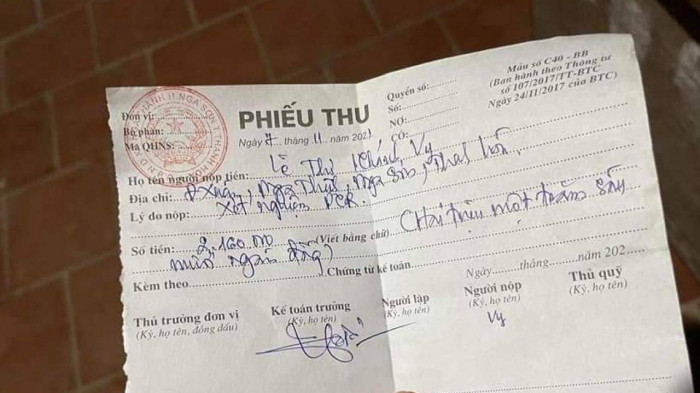 Mẫu số C40 - BB
(Ban hành theo Thông tư
số 107/2017/TT-BTC
Ngày 24/11/2017 của BTC)
Quyển số:
Số:
NỢ:
CÓ:
Đơn vị:
Bộ phận:
Mã QHNS:
PHIẾU THU
Ngày 7 tháng 11 năm 2021
Họ tên người nộp tiền: Lê Thị Khánh Vy
Địa chỉ: Nga Thủy, Nga Sơn, Thanh Hóa
Lý do nộp: Xét nghiệm PCR.
Số tiền: 2.160.000 (Viết bằng chữ) (Hai triệu một trăm sáu
mươi ngàn đồng)
Kèm theo Chứng từ kế toán
Ngày tháng năm 202
Thủ trưởng đơn vị
(Ký, họ tên, đóng dấu)
Kế toán trưởng
(Ký, họ tên)
Người lập
(Ký, họ tên)
Người nộp
(Ký, họ tên)
Vy
Thủ quỹ
(Ký, họ tên)